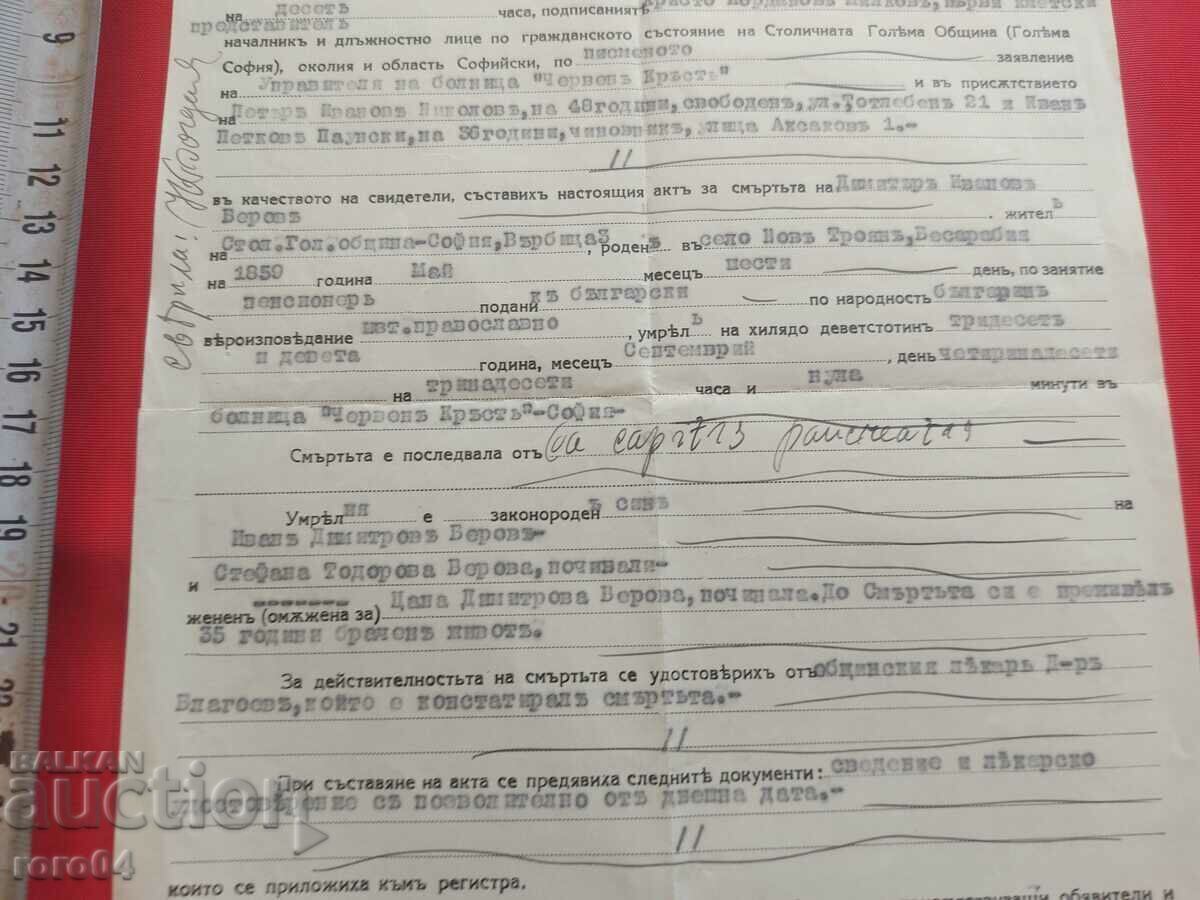 на десетъ часа, подписаниятъ
представителъ
началникъ и длъжностно лице по гражданското състояние на Столичната Голѣма Община (Голѣма
София), околия и область Софийски, по писменото заявление
на Управителя на болница "Червенъ Кръстъ" и въ присѫтствието
на Петъръ Ивановъ Николовъ, на 48 години, свободенъ, ул. Тотлебенъ 21 и Иванъ
Петковъ Паунски, на 36 години, чиновникъ, улица Аксаковъ 1.-
//
въ качеството на свидетели, съставихъ настоящия актъ за смъртьта на Димитъръ Ивановъ
Беровъ жителъ
на Стол. Гол. община-София, Върбица 3, роденъ въ село Новъ Троянъ, Бесарабия
на 1859 година Май месецъ шести день, по занятие
пенсионеръ подани къ български по народность българинъ
вѣроизповѣдание изт. православно, умрѣлъ на хилядо деветстотинъ тридесетъ
и девета година, месецъ Септемврий, день четиринадесети
на тринадесети часа и нула минути въ
болница "Червенъ Кръстъ"-София-
Смъртьта е последвала отъ
Умрѣлия е законороденъ синъ на
Иванъ Димитровъ Беровъ-
и Стефана Тодорова Берова, починали-
жененъ (омѫжена за) Цана Димитрова Берова, починала. До Смъртьта си е преживѣлъ
35 години браченъ животъ.
За действителностьта на смъртьта се удостовѣрихъ отъ общинския лѣкарь Д-ръ
Благоевъ, който е констатиралъ смъртьта.-
//
При съставяне на акта се предявиха следнитѣ документи: сведение и лѣкарско
удостовѣрение съ позволително отъ днешна дата.-
//
които се приложиха къмъ регистра.
обявители и
свѣрила!
9
11
12
13
14
15
16
17
18
19
21
22
BALKAN
auction
roro04